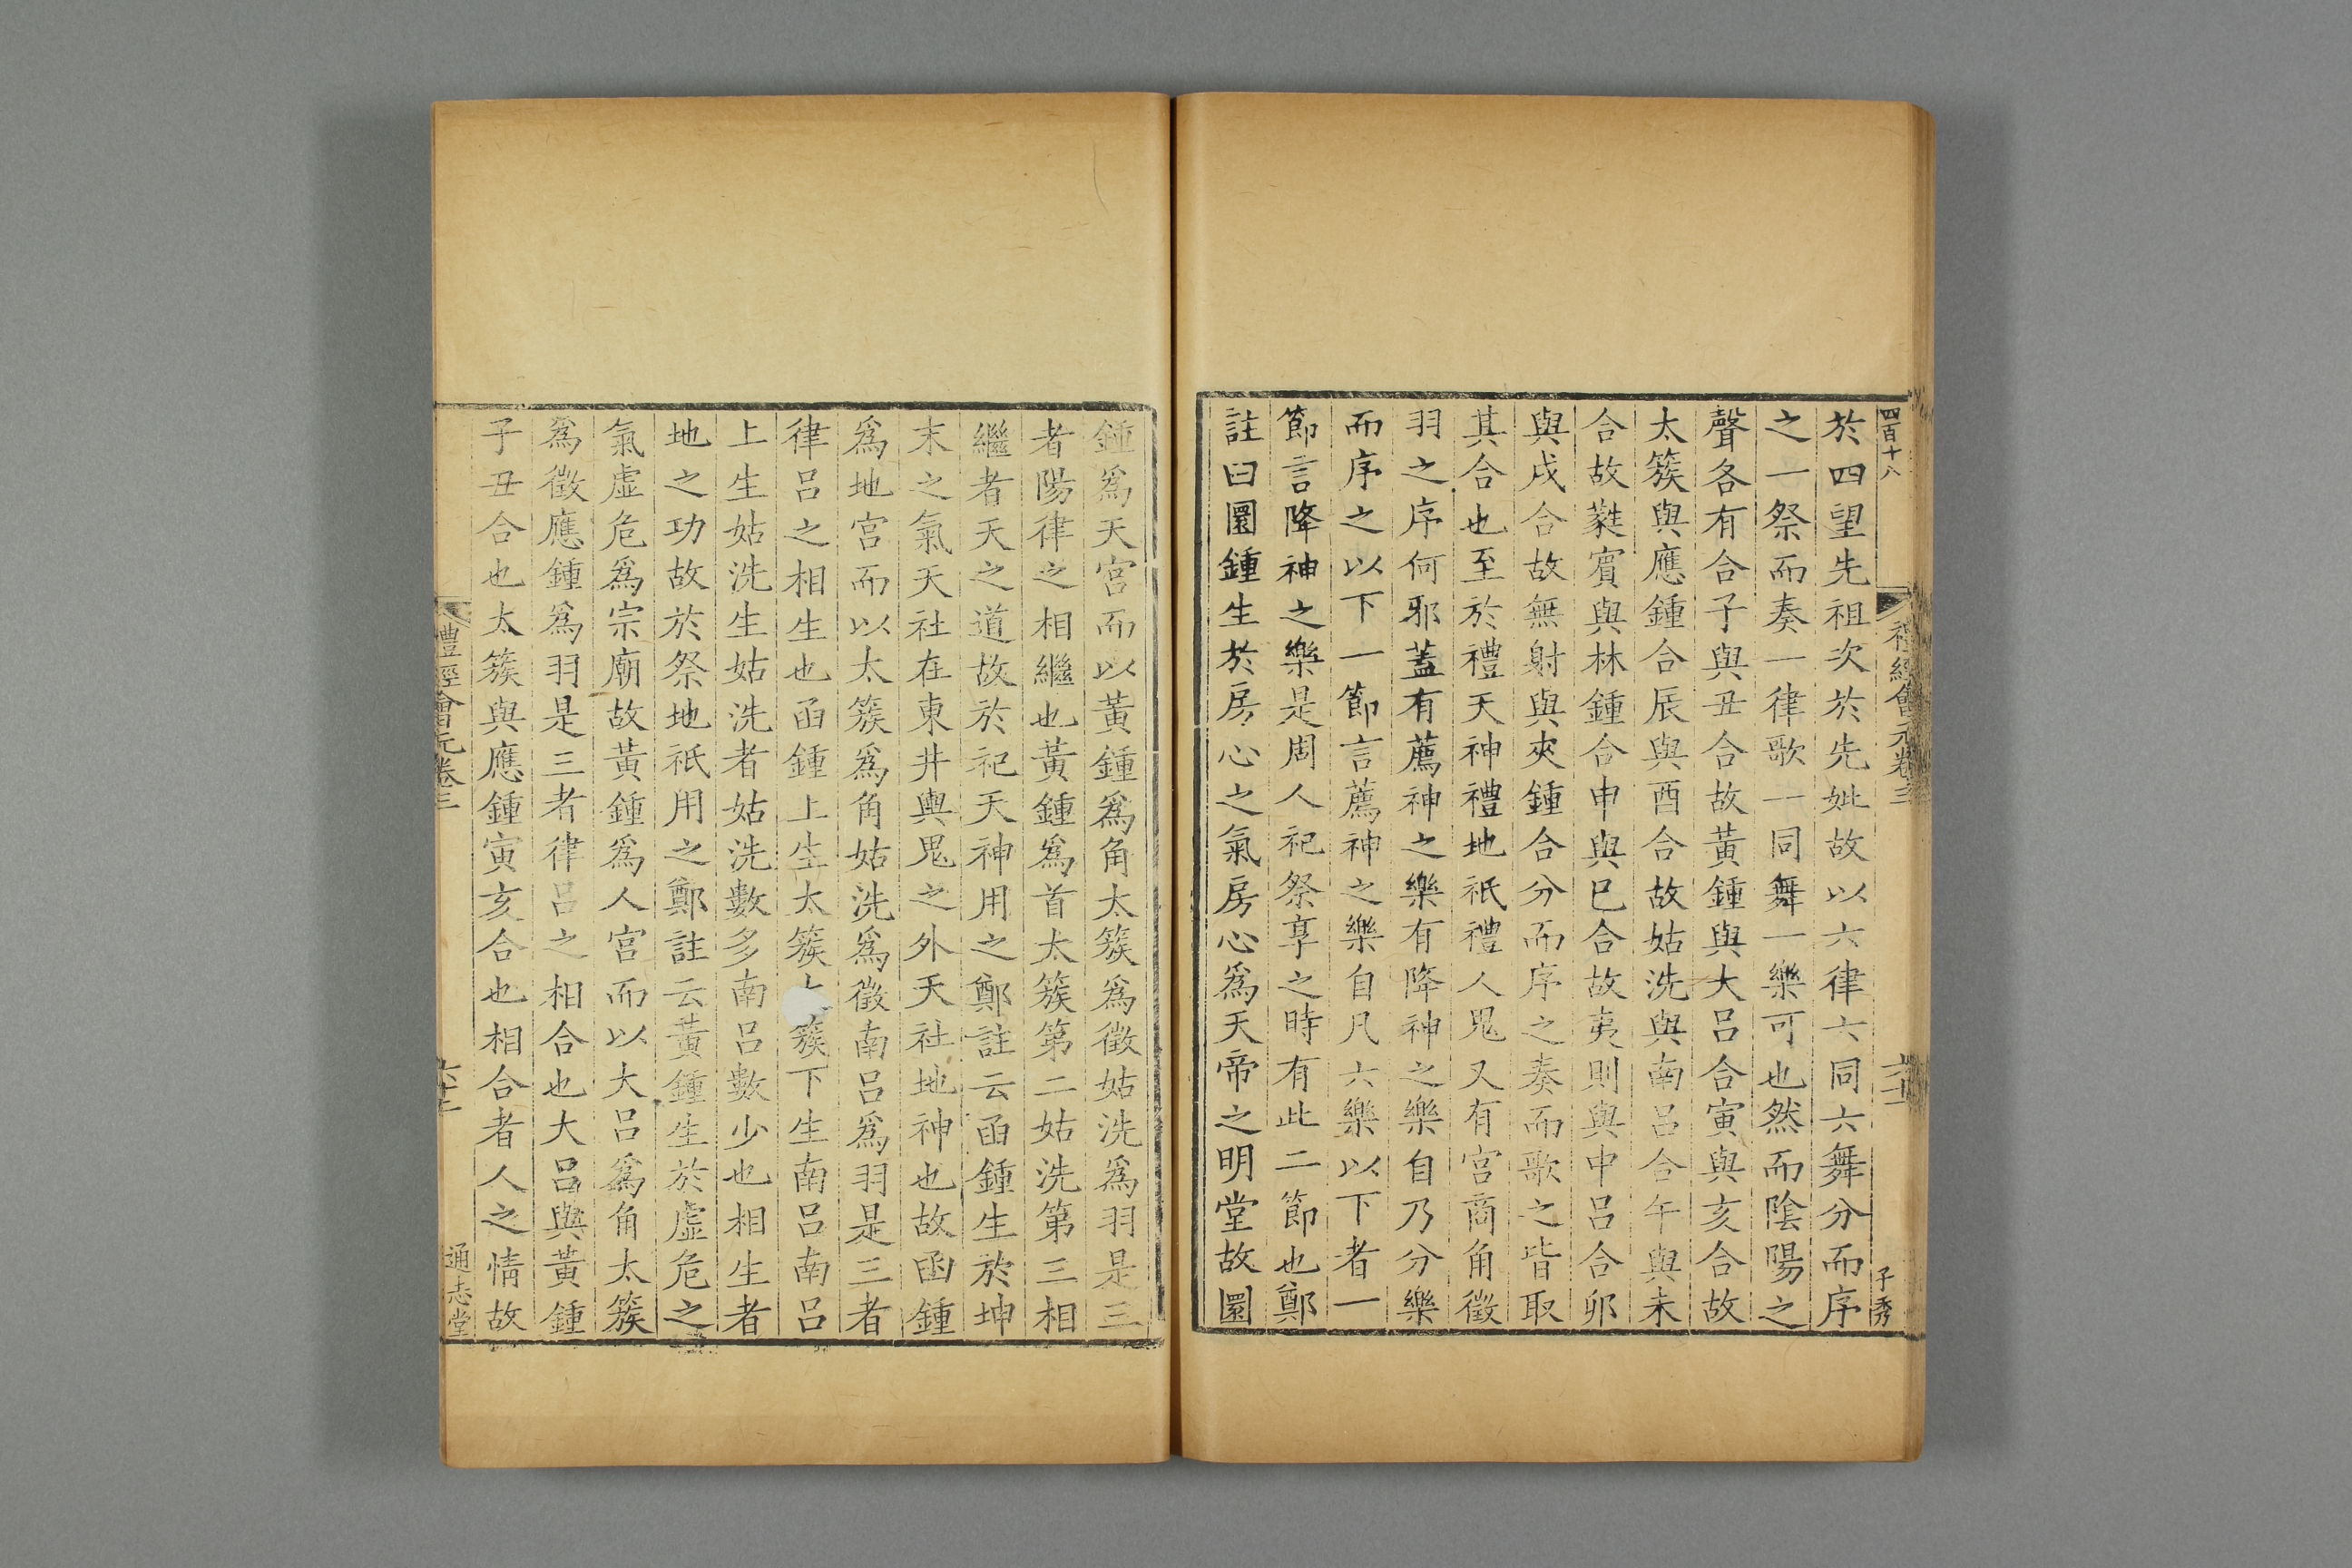 四百十八
禮經會元卷三
六十一
子秀
於四望先祖次於先妣故以六律六同六舞分而序
之一祭而奏一律歌一同舞一樂可也然而陰陽之
聲各有合子與丑合故黃鍾與大呂合寅與亥合故
太簇與應鍾合辰與酉合故姑洗與南呂合午與未
合故蕤賔與林鍾合申與巳合故夷則與中呂合卯
與戌合故無射與夾鍾合分而序之奏而歌之皆取
其合也至於禮天神禮地祇禮人鬼又有宮商角徵
羽之序何邪蓋有薦神之樂有降神之樂自乃分樂
而序之以下一節言薦神之樂自凡六樂以下者一
節言降神之樂是周人祀祭享之時有此二節也鄭
註曰圜鍾生於房心之氣房心為天帝之明堂故圜
鍾為天宮而以黃鍾為角太簇為徵姑洗為羽是三
者陽律之相繼也黃鍾為首太簇第二姑洗第三相
繼者天之道故於祀天神用之鄭註云函鍾生於坤
末之氣天社在東井輿鬼之外天社地神也故函鍾
為地宮而以太簇為角姑洗為徵南呂為羽是三者
律呂之相生也函鍾上生太簇簇下生南呂南呂
上生姑洗生姑洗者姑洗數多南呂數少也相生者
地之功故於祭地祇用之鄭註云黃鍾生於虛危之
氣虛危為宗廟故黃鍾為人宮而以大呂為角太簇
為徵應鍾為羽是三者律呂之相合也大呂與黃鍾
子丑合也太簇與應鍾寅亥合也相合者人之情故
禮經會元卷三
通志堂